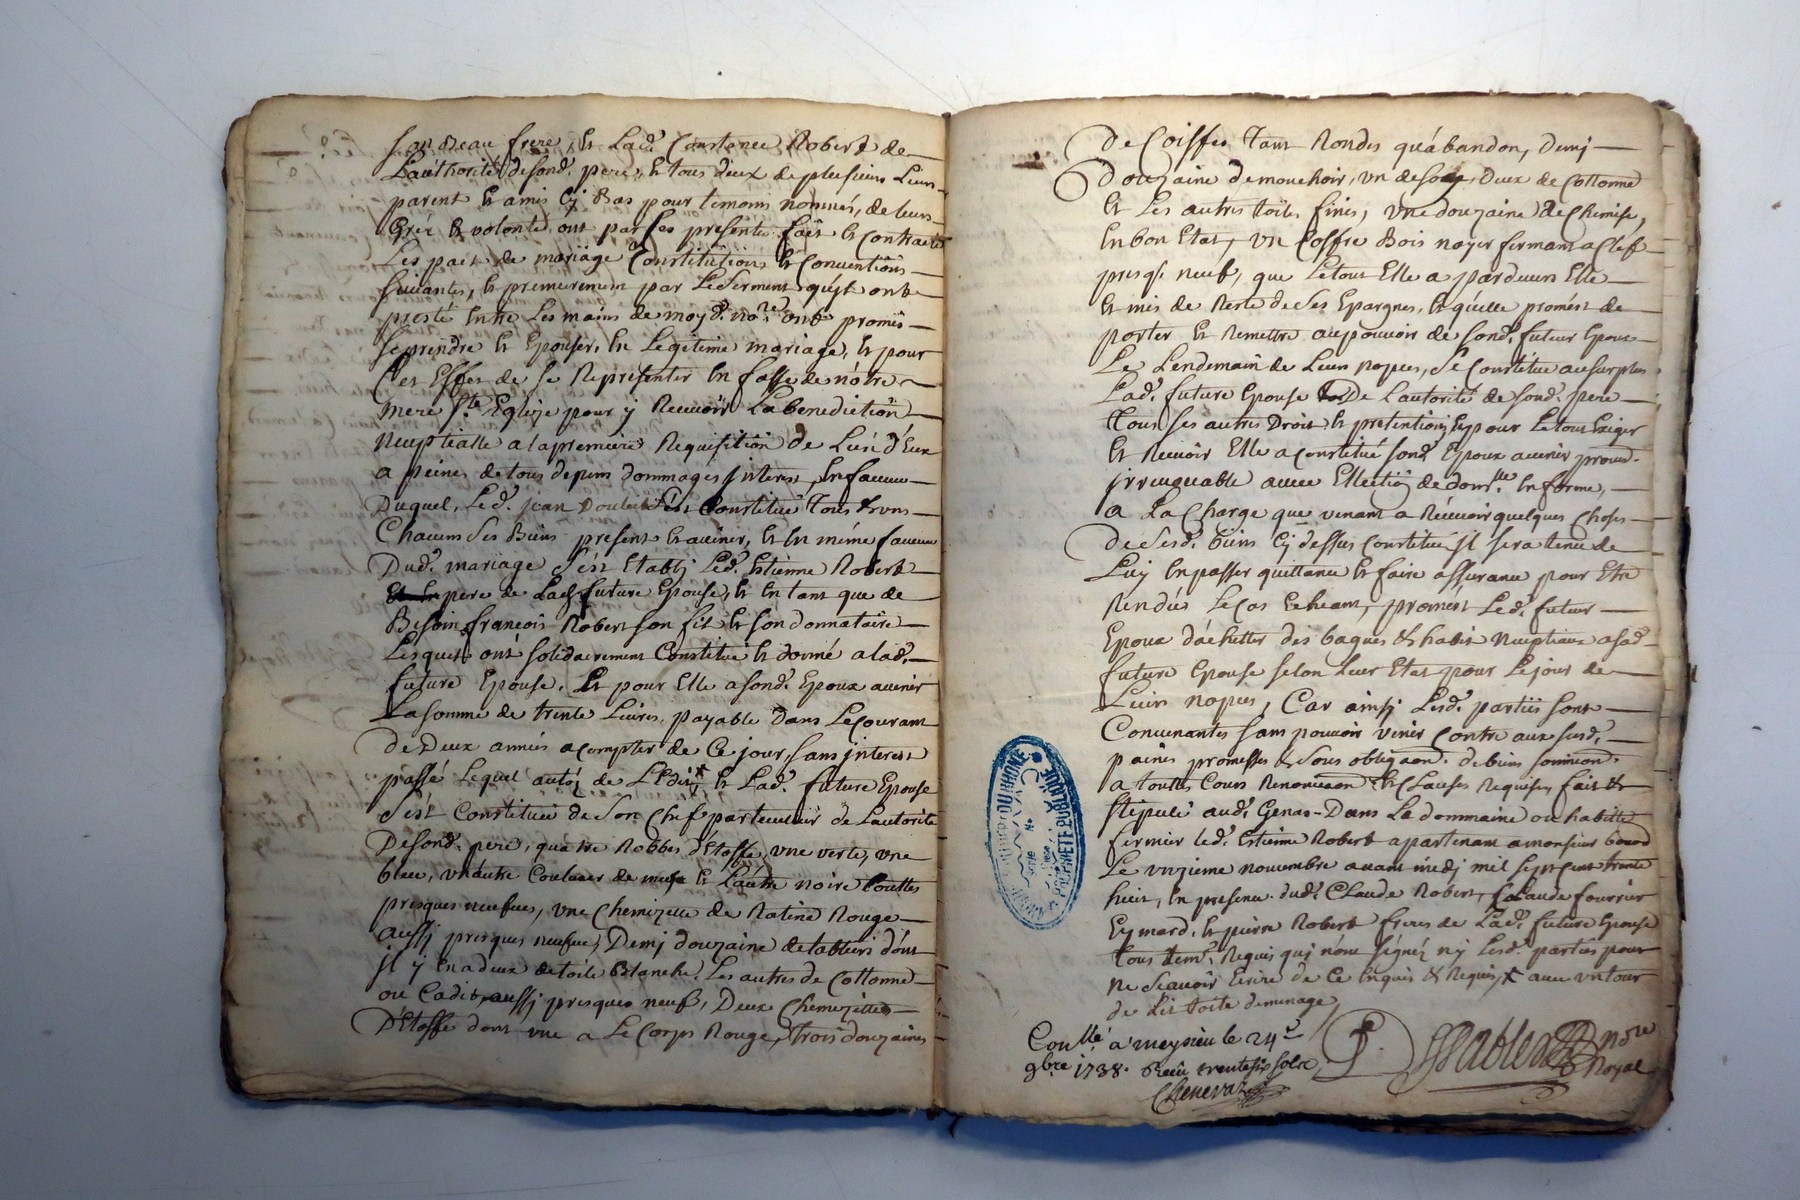 son Beau frere, et Lad. Constance Robert de
Lauthorité de sond. pere, et tous deux de plusieurs Leurs
parent et amis Cy Bas pour temoins nommés, de leurs
Gréz et volonté ont par Ces presente fait et Contracté
Les pact de mariage Constitutions et Conventions
suivantes, et premierement par Le Serment qu'jl ont
presté Entre Les mains de moyd. no.re ont promis
se prendre et Epouser, En Legitime mariage, et pour
C'est Effet de se Representer En fasse de nôtre
mere Ste Eglize pour y Recevoir La benediction
neuptialle a la premiere Requisition de Lun d'Eux
a peines de tous depens dommages jnterest, En faveur
Duquel, Led. jean s'est Constitué Tous et uns
Chacuns Ses Biens present et avenir, et En même faveur
Dud. mariage s'est Etably Led. Estienne Robert
pere de Lad. future Epouse, et En tant que de
Besoin francois Robert son fils et son donnataire
Lesquels ont solidairement Constitué et donné a lad.
future Epouse, Et pour Elle a sond. Epoux avenir
La somme de trente Livres, payable dans Le Courant
de Deux années a Compter de Ce jour, sans jnterest
passé Lequel autoz de L'Edist, et Lad. future Epouse
s'est Constituée de Son Chef particulier de Lautorité
De sond. pere, quatre Robbes d'Etoffe, une verte, une
bleu, un autre Couleur de muse et L'autre noire touttes
presques neufues, une Chemizette de Ratine Rouge
aussj presques neufue, Demj douzaine de tabliers dont
jl y En a deux de toile Blanche, Les autres de Cottonne
ou Cadis, aussj presques neufs, Deux Chemizettes
D'Etoffe dont une a Le Corps Rouge, trois douzaines
de Coiffes Tant Rondes qu'abandon, Demj
Douzaine de mouchoir, un de soye, Deux de Cottonne
et Les autres toiles fines, une douzaine de Chemise,
En bon Etat, un Coffre Bois noyer fermant a Clef
presqs. neuf, que Le tout Elle a pardevers Elle
et mis de Reste de Ses Epargnes, et quelle promest de
porter et Remettre au pouvoir de sond. futur Epoux
Le Lendemain de Leurs nopces, Se Constitue au surplus
Lad. future Epouse De Lautorité de sond. pere
Tous ses autres Droit et pretentions, Et pour Le tout Exiger
et Recevoir Elle a Constitué sond. Epoux avenir procur.
jrrevocable avec Ellection de domlle En forme,
a La Charge que venant a Recevoir quelques Choses
de Sesd. biens Cy dessus Constitué jl sera tenu de
Luy En passer quittance et faire assurance pour Etre
Rendu Le Cas Echeant, promest Led. futur
Epoux d'achetter des bagues et habit neuptiaux a sad.
future Epouse selon Leur Etat pour Le jour de
Leurs nopces, Car ainsj Lesd. parties sont
Convenantes sans pouvoir venir Contre aux susd.
paines promesses et sous obligaon. de biens soumission.
a touttes Cours Renonciaon et Clauses Requises, fait et
stipulé aud. Genas Dans Le dommaine ou habitte
fermier led. Estienne Robert apartenant a monsieur
Le vnzieme novembre avant midj mil sept cent trente
huit, En presence dud. Claude Robert, Claude fourrier
Eymard, et pierre Robert freres de Lad. future Epouse
tous tem. Requis quj n'ont signéz ny Lesd. parties pour
ne Scavoir Ecrire de Ce Enquis et Requis, avec un tour
de Lit toile de menage
Conllé a meyzieu le 24e
9bre 1738. Receu trente six sols
Chenevaz
nore
Royal
PROPRIÉTÉ PUBLIQUE
DU RHONE